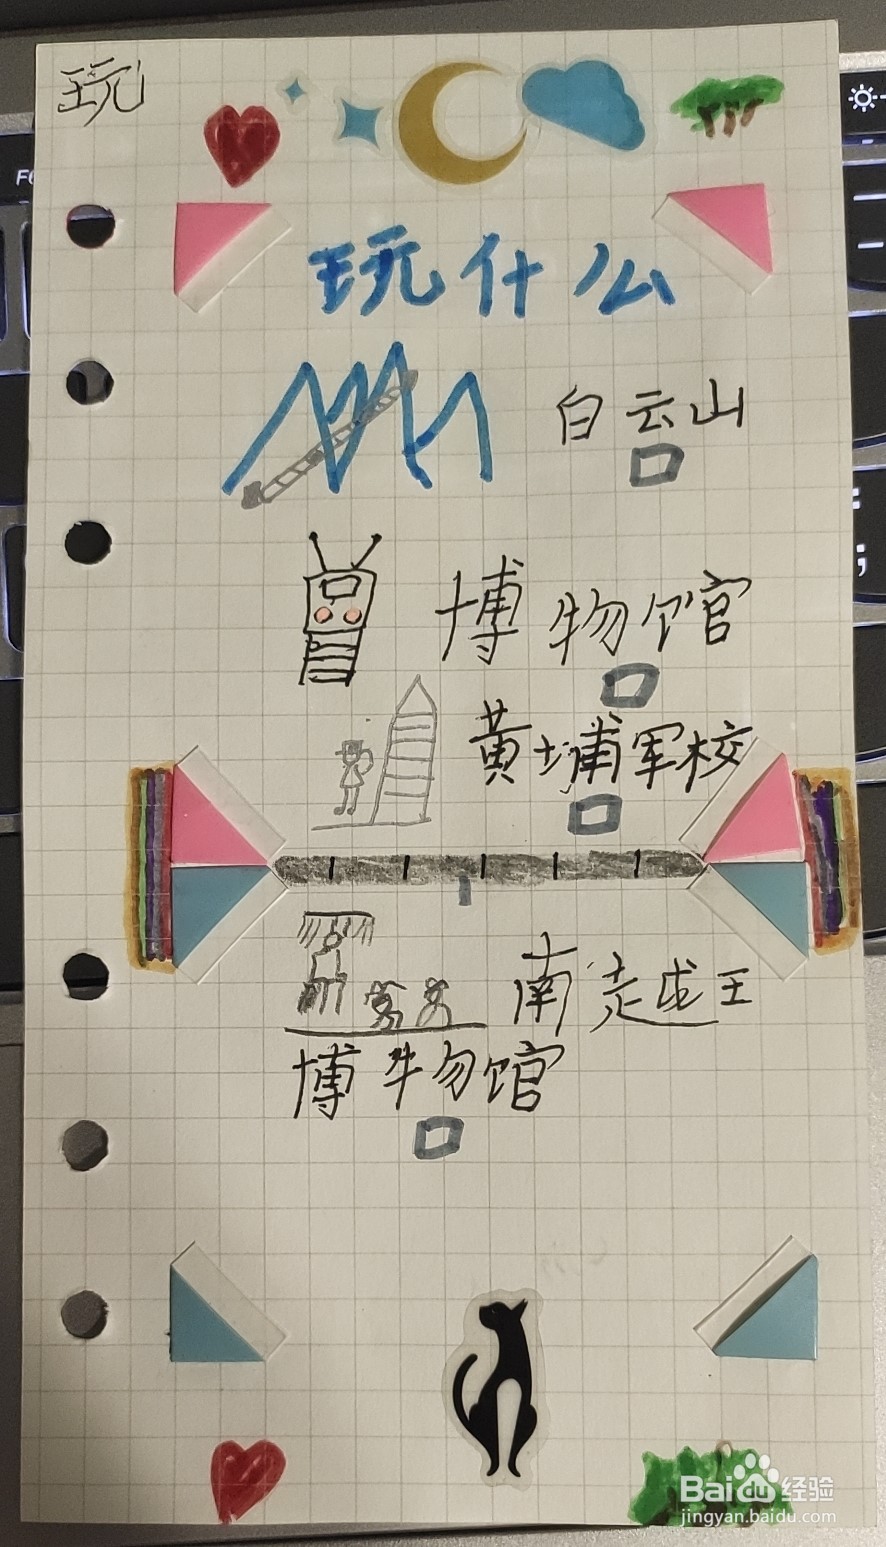 玩
玩什么
白云山
博物馆
黄埔军校
南越王
博物馆
Baidu经验
jingyan.baidu.com